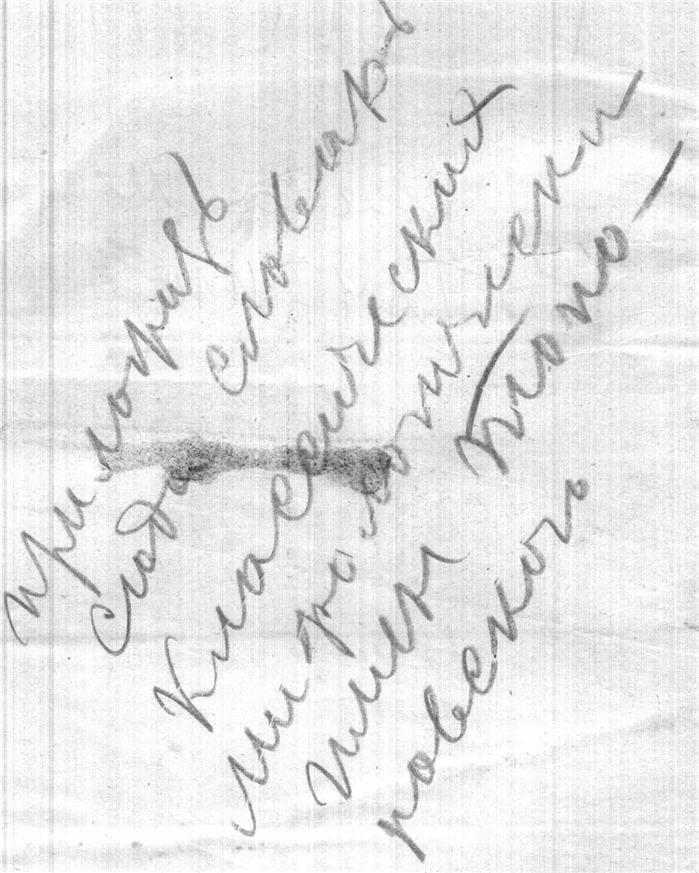 приложить
сюда словарь
классических
мифологически
имен Топо-
ровского